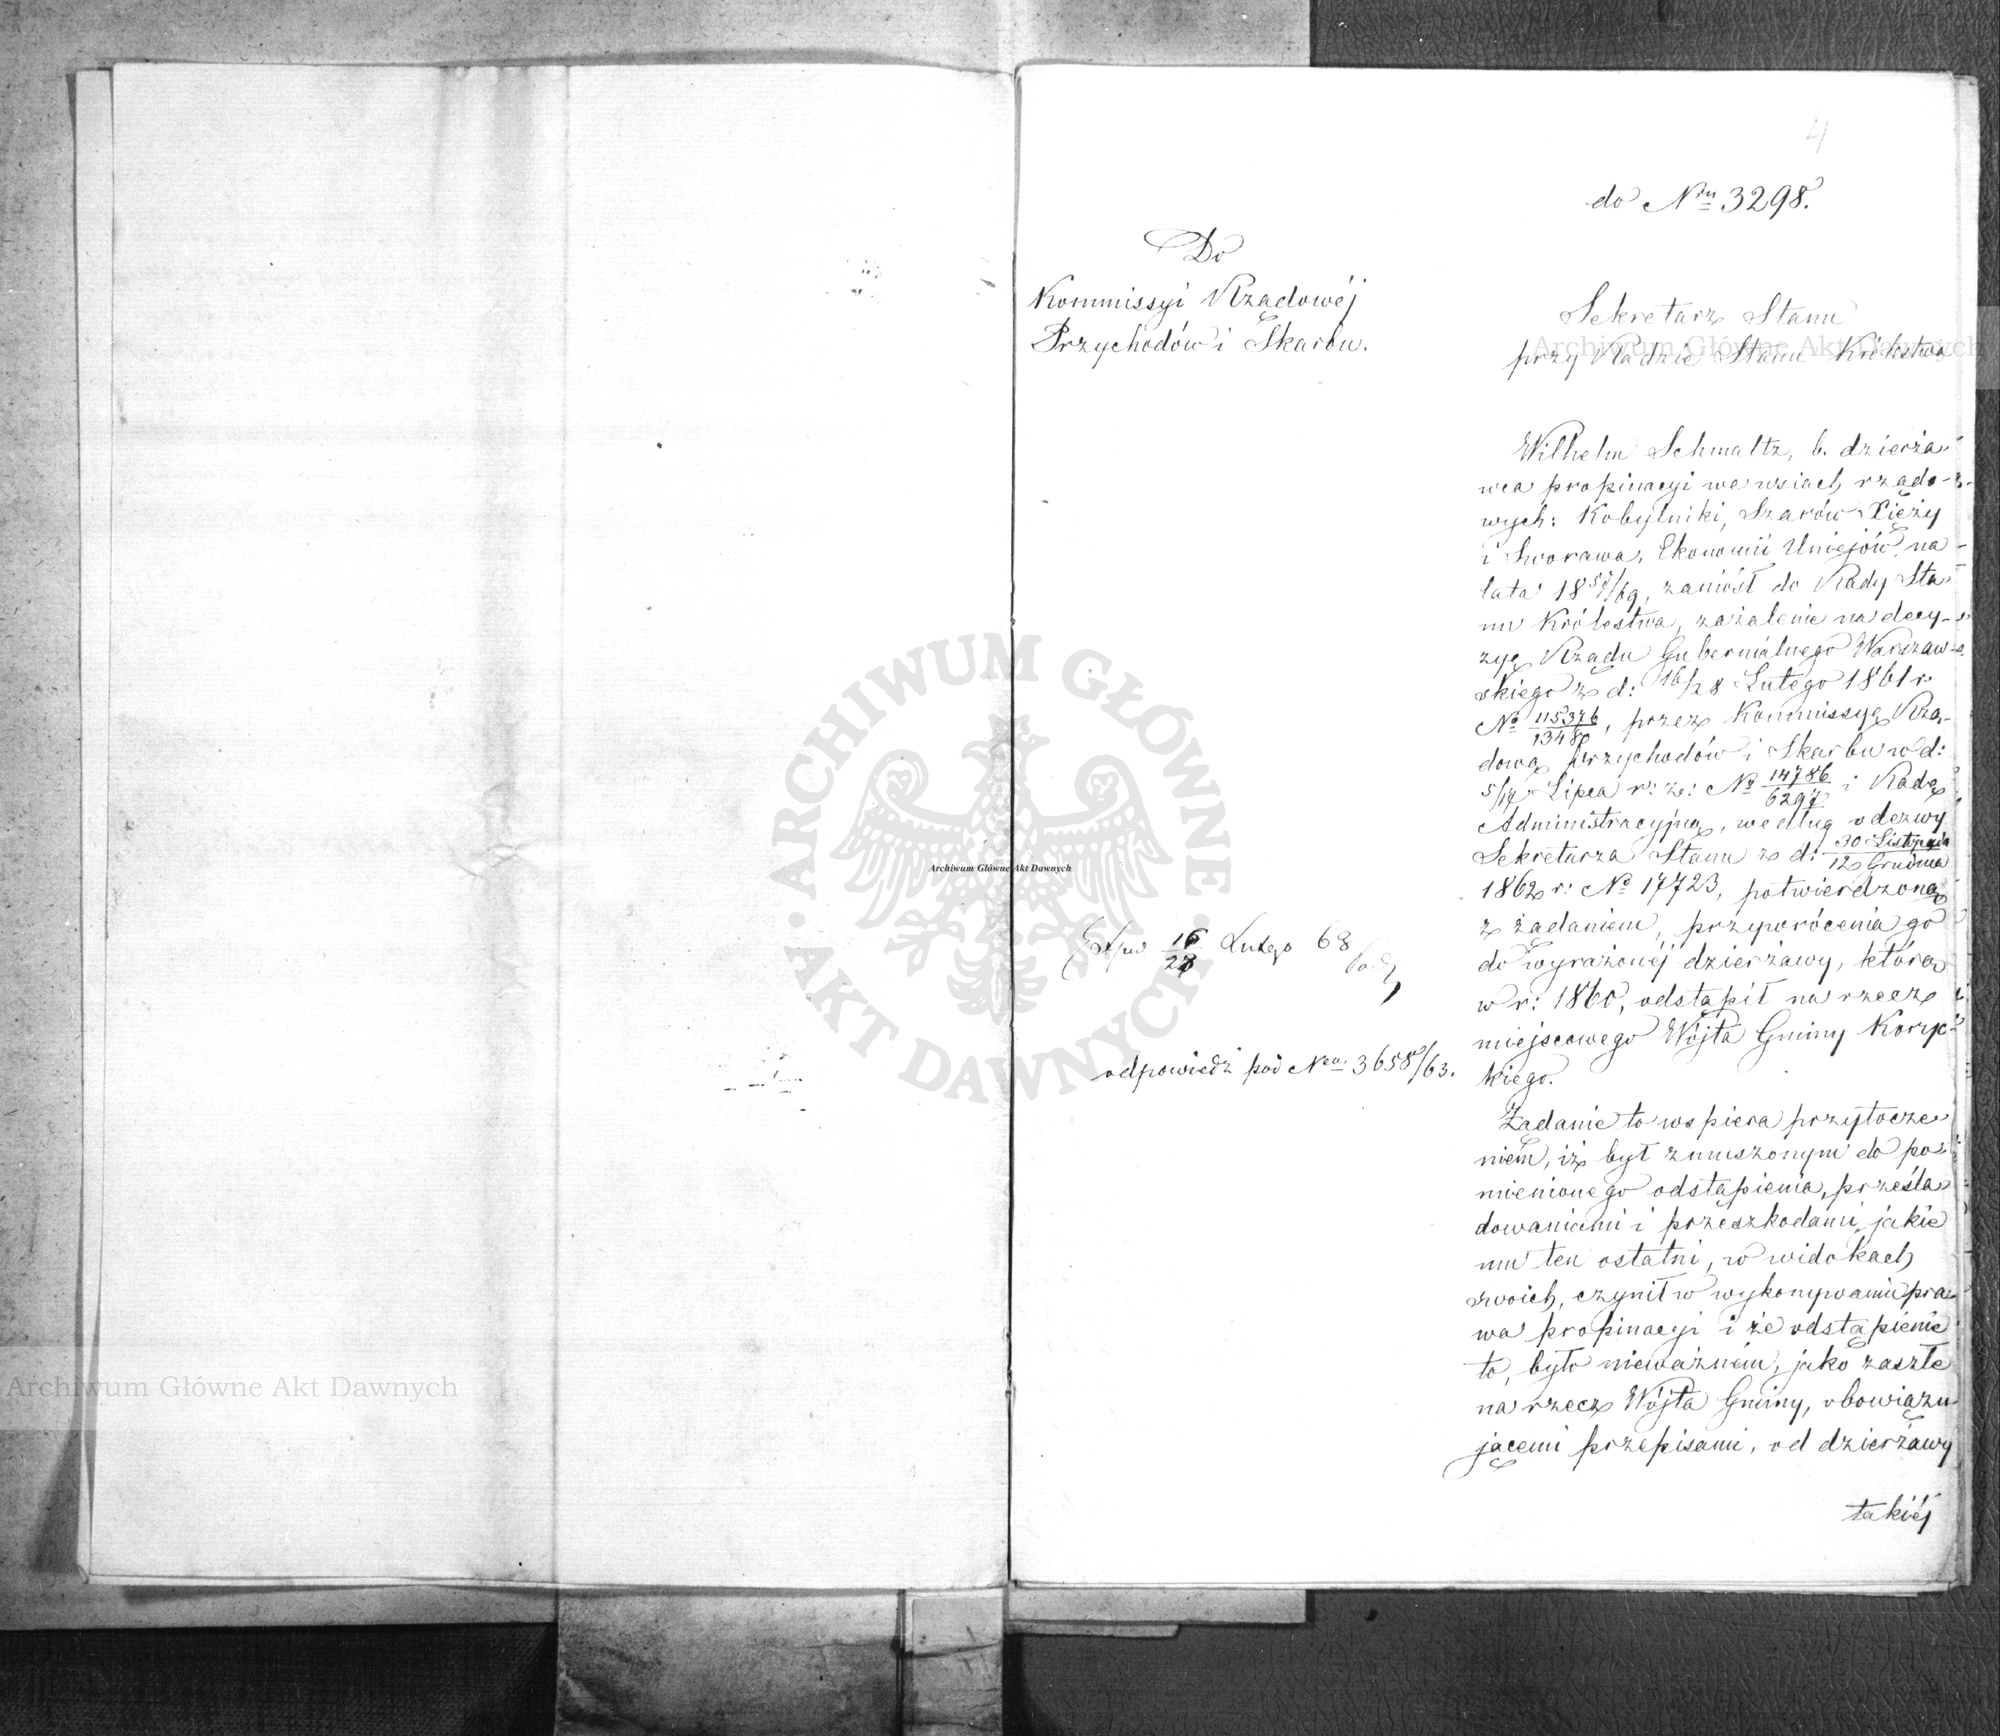 4
do Nru 3298.
Do
Kommissyi Rządowéj
Przychodów i Skarbu.
Sekretarz Stanu
przy Radzie Stanu Królestwa
Wilhelm Schmaltz, b. dzierża-
wca propinacyi we wsiach rządo-
wych: Kobylniki, Szarów Xięży
i Sworawa, Ekonomii Uniejów, na
lata 1857/69, zaniósł do Rady Sta-
nu Królestwa, zażalenie na decy-
zyę Rządu Gubernialnego Warszaw-
skiego z d: 16/28 Lutego 1861 r.
No 115376/13480, przez Kommissyę Rzą-
dową Przychodów i Skarbu w d:
5/17 Lipca r: z: No 14786/6297 i Radę
Administracyjną, według odezwy
Sekretarza Stanu z d: 30 Listopada/12 Grudnia
1862 r: No 17723, potwierdzoną
z żądaniem, przywrócenia go
do wyrażonéj dzierżawy, którą
w r: 1860, odstąpił na rzecz
miejscowego Wójta Gminy Koryc-
kiego.
Żądanie to wspiera przytocze-
niem, iż był zmuszonym do po-
mienionego odstąpienia, prześla-
dowaniami i przeszkodami, jakie
mu ten ostatni, w widokach
swoich, czynił w wykonywaniu pra-
wa propinacyi i że odstąpienie
to, było nieważném, jako zaszłe
na rzecz Wójta Gminy, obowiązu-
jącemi przepisami, od dzierżawy
takiéj
16/28 Lutego 63
odpowiedź pod Nem 3658/63.
Archiwum Główne Akt Dawnych
Archiwum Główne Akt Dawnych
Archiwum Główne Akt Dawnych
ARCHIWUM GŁÓWNE · AKT DAWNYCH ·